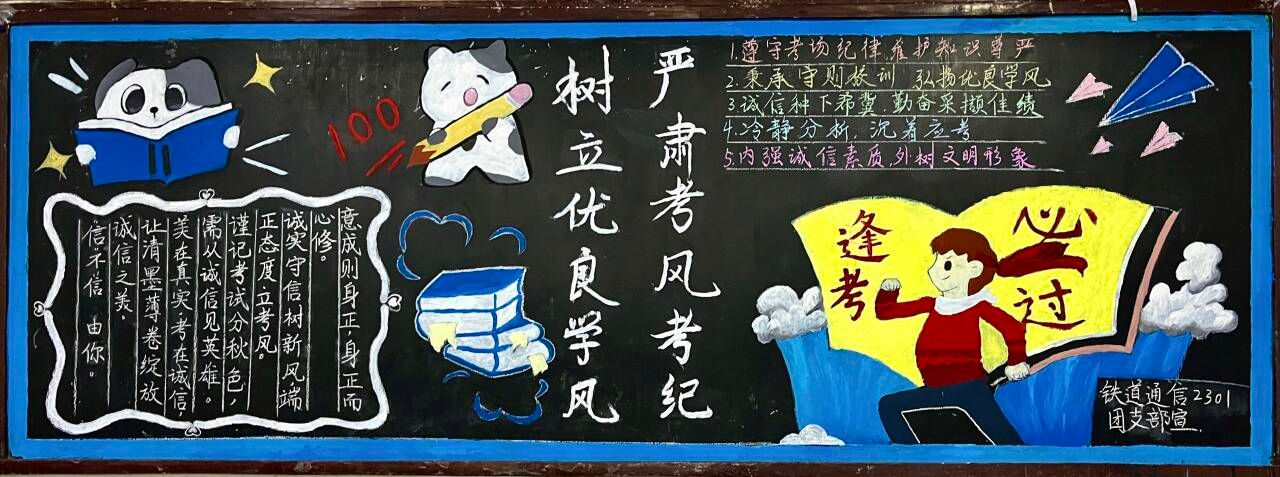 100
意成则身正身正而
心修。
诚实守信树新风端
正态度立考风。
谨记考试分秋色，
需从诚信见英雄。
美在真实考在诚信
让清墨薄卷绽放
诚信之美。
信不信 由你。
严肃考风考纪
树立优良学风
1.遵守考场纪律维护知识尊严
2.秉承守则校训 弘扬优良学风
3.诚信种下希冀 勤奋采撷佳绩
4.冷静分析，沉着应考
5.内强诚信素质，外树文明形象
逢考
必过
铁道通信2301
团支部宣